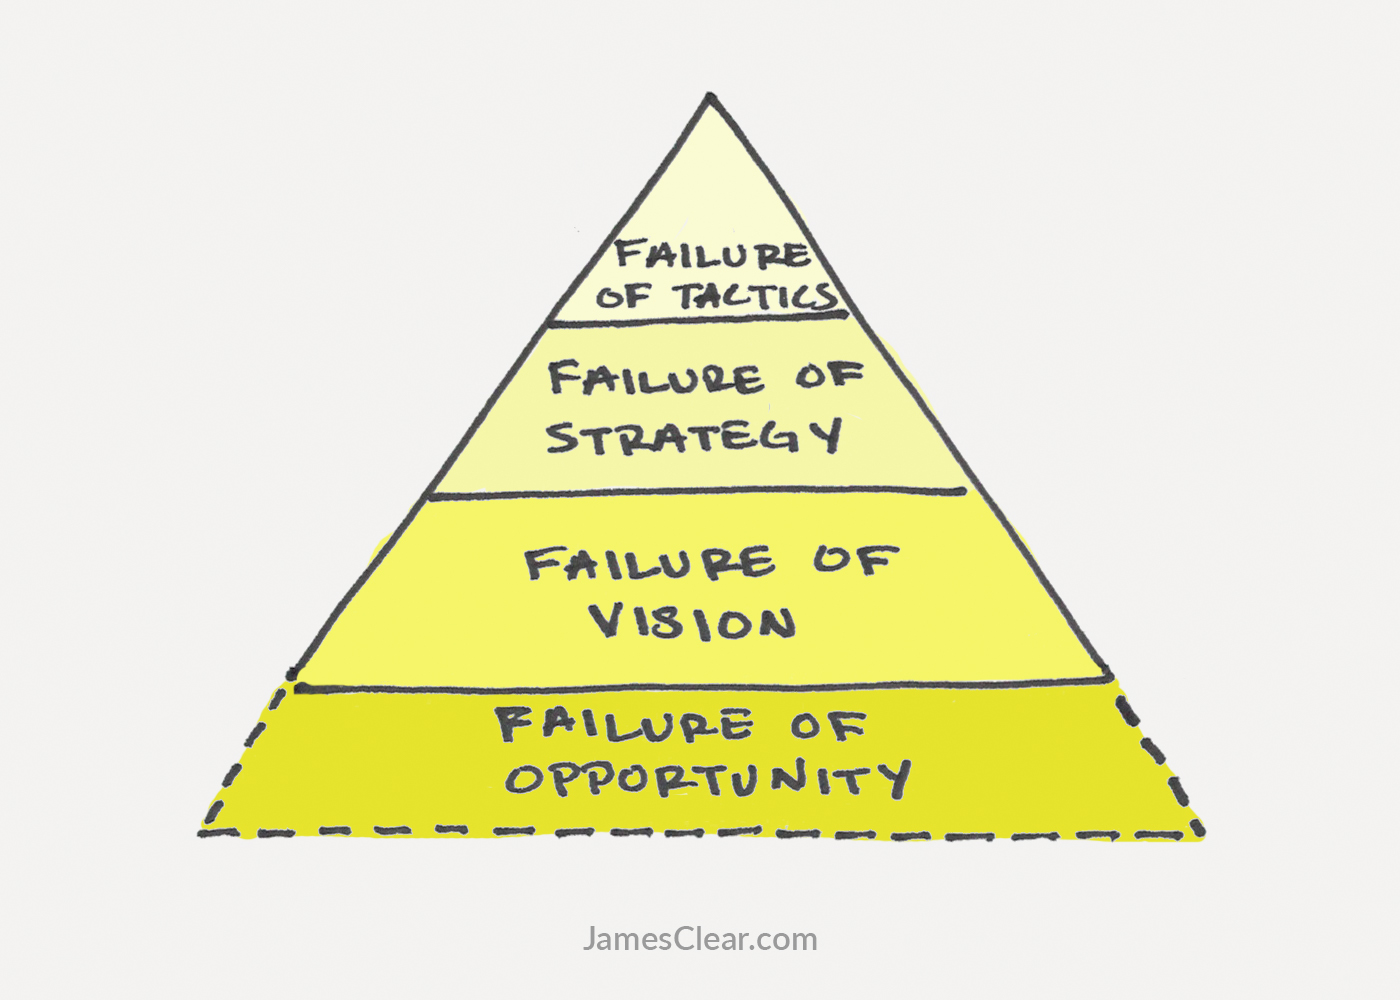 FAILURE
OF TACTICS
FAILURE OF
STRATEGY
FAILURE OF
VISION
FAILURE OF
OPPORTUNITY
JamesClear.com